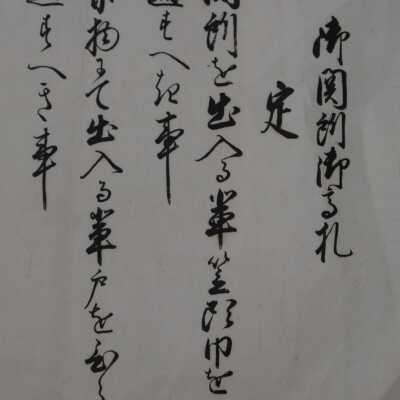 御関所御高札
定
関所を出入る輩笠頭巾を
通すへき事
乗物にて出入る輩戸を
通すへき事